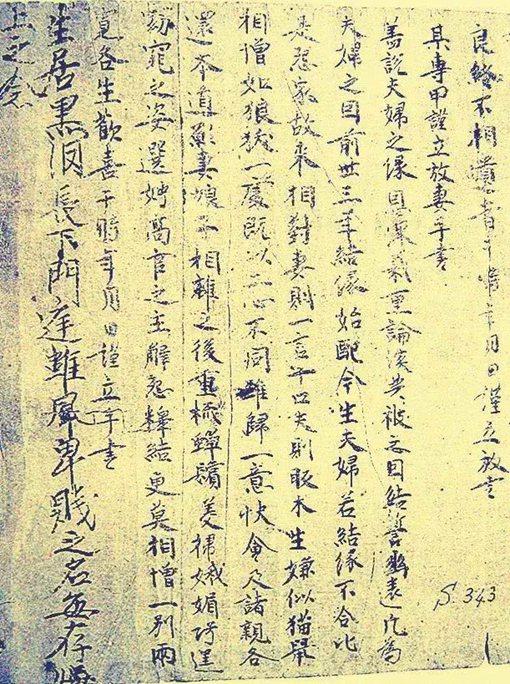 不相書于時年月日謹立放書
某專甲謹立放妻手書
蓋說夫婦之緣恩深義重論談共被之因結誓幽遠凡為
夫婦之因前世三年結緣始配今生夫婦若結緣不合比
是怨家故來相對妻則一言十口夫則販木生嫌似猫鼠
相憎如狼羖一處既以二心不同難歸一意快會及諸親各
還本道願妻娘子相離之後重梳蟬鬢美掃娥媚巧逞
窈窕之姿選娉高官之主解怨釋結更莫相憎一別兩
寬各生歡喜于時年月日謹立手書
生居黑長下門庭雖居卑賤之名每存
上之念
S. 343